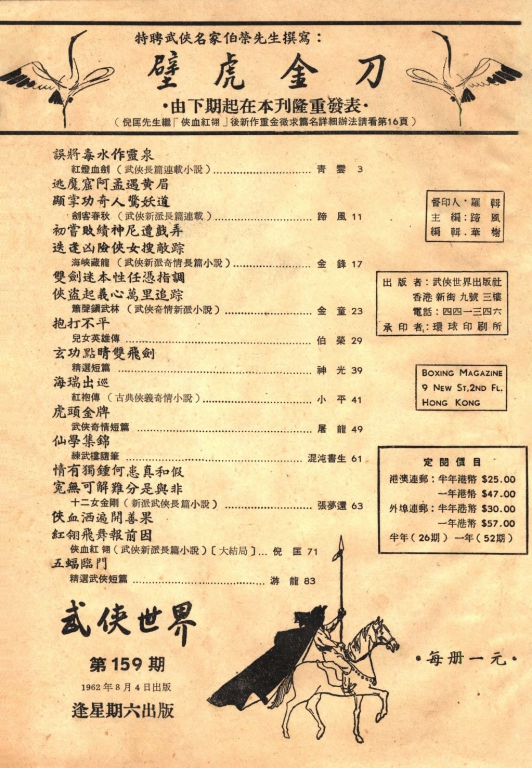 特聘武俠名家伯榮先生撰寫：
壁虎金刀
•由下期起在本刊隆重發表•
（倪匡先生繼「俠血紅翎」後新作重金徵求篇名詳細辦法請看第16頁）
誤將毒水作靈泉
紅燈血劍（武俠長篇連載小說）……青雲 3
逃魔窟阿孟遇黃眉
顯掌功奇人驚妖道
劍客春秋（武俠新派長篇連載）……蹄風 11
初嘗敗績神尼遭戲弄
迭逢凶險俠女搜敵踪
海峽藏龍（武俠新派奇情長篇小說）……金鋒 17
雙劍迷本性任憑指調
俠盜起義心萬里追踪
簫聲鎭武林（武俠奇情新派小說）……金童 23
抱打不平
兒女英雄傳……伯榮 29
玄功點睛雙飛劍
精選短篇……神光 39
海瑞出巡
紅袍傳（古典俠義奇情小說）……小平 41
虎頭金牌
武俠奇情短篇……屠龍 49
仙學集錦
練武樓隨筆……混沌書生 61
情有獨鍾何患真和假
寃無可解難分是與非
十二女金剛（新派武俠長篇小說）……張夢還 63
俠血洒遍開善果
紅翎飛舞報前因
俠血紅翎（武俠新派長篇小說）〔大結局〕…倪匡 71
五蝠臨門
精選武俠短篇……游龍 83
督印人·羅輯
主編：蹄風
編輯·華樹
出版者：武俠世界出版社
香港新街九號三樓
電話：四四一三四六
承印者：環球印刷所
BOXING MAGAZINE
9 NEW ST,2ND FL.
HONG KONG
定閱價目
港澳連郵：半年港幣$25.00
一年港幣$47.00
外埠連郵：半年港幣$30.00
一年港幣$57.00
半年（26期）一年（52期）
武俠世界
第159期
1962年8月4日出版
逢星期六出版
•每册一元•